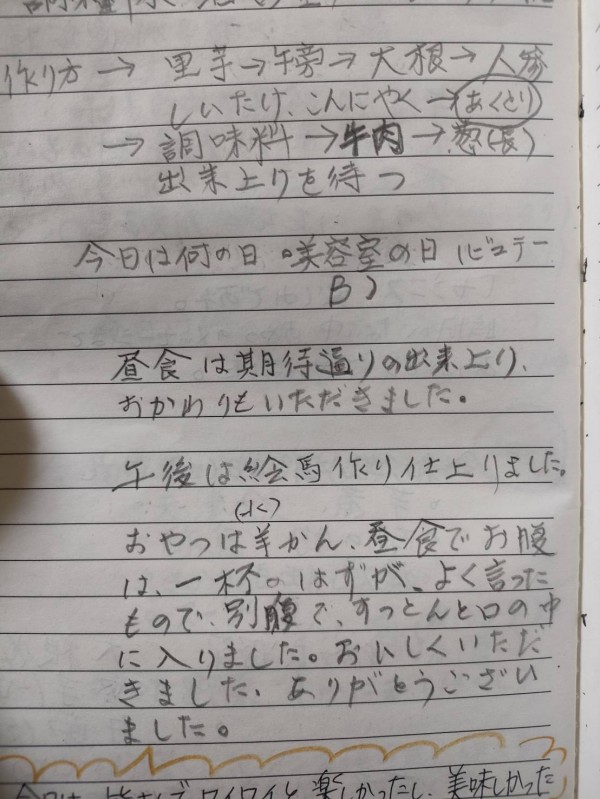 作り方 → 里芋→牛蒡→大根→人参
しいたけ、こんにゃく→あくとり
→ 調味料→牛肉→葱(長)
出来上りを待つ
今日は何の日 。美容室の日 (ビューテー
B)
昼食は期待通りの出来上り、
おかわりもいただきました。
午後は絵馬作り仕上りました。
おやつは羊かん、昼食でお腹
は、一杯。はずが、よく言った
もので、別腹で、すっとんと口の中
に入りました。おいしくいただ
きました。ありがとうござい
ました。
今日は 皆さんで ワイワイと 楽しかったし、美味しかった